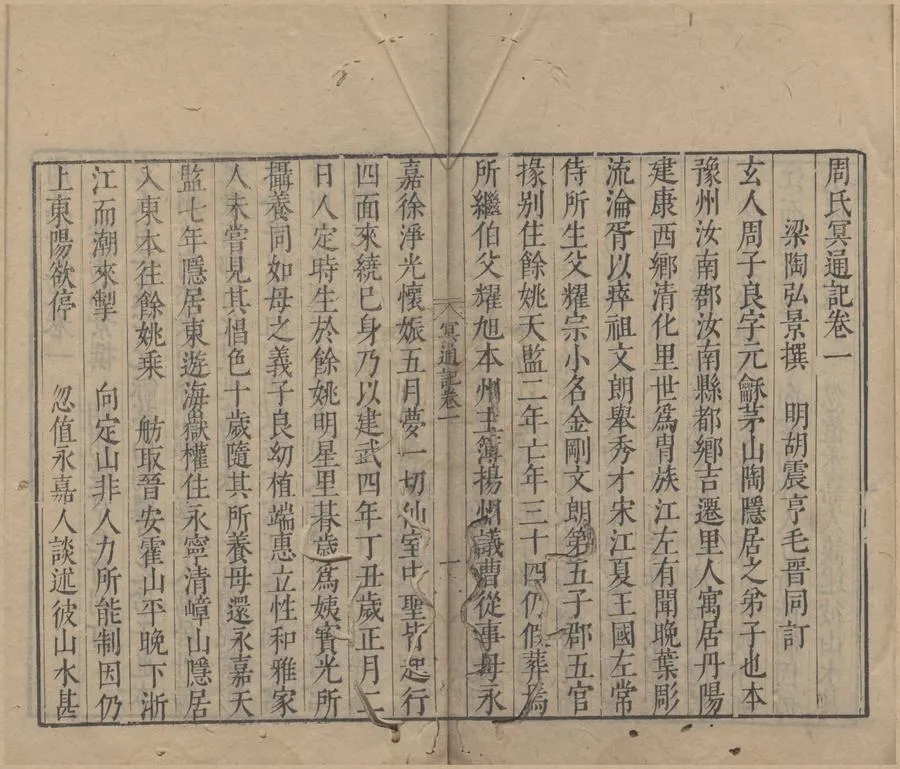 周氏冥通記卷一
梁陶弘景撰　明胡震亨毛晉同訂
玄人周子良字元龢茅山陶隱居之弟子也本
豫州汝南郡汝南縣都鄉吉遷里人寓居丹陽
建康西鄉清化里世為胄族江左有聞晚葉彫
流淪胥以瘁祖文朗舉秀才宋江夏王國左常
侍所生父耀宗小名金剛文朗第五子郡五官
掾別住餘姚天監二年亡年三十四仍假葬焉
所繼伯父耀旭本州主簿揚州議曹從事母永
冥通記卷一
一
嘉徐淨光懷娠五月夢一切仙室中聖皆起行
四面來繞巳身乃以建武四年丁丑歲正月二
日人定時生於餘姚明星里朞歲為姨寶光所
攝養同如母之義子良幼植端惠立性和雅家
人未嘗見其愠色十歲隨其所養母還永嘉天
監七年隱居東遊海嶽權住永寧清嶂山隱居
入東本往餘姚乘　舫取晉安霍山平晚下浙
江而潮來掣　向定山非人力所能制因仍
上東陽欲停　忽值永嘉人談述彼山水甚